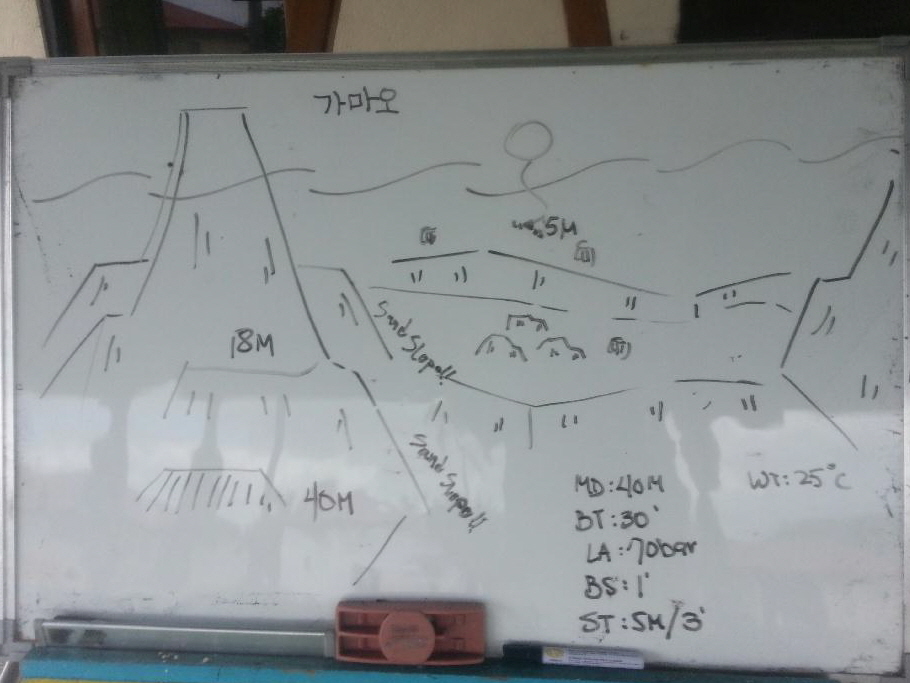 가마오
5M
18M
Sand Slope!!
Sand Slope!!
40M
MD:40M
WT:25°C
BT:30'
LA:70bar
BS:1'
ST:5M/3'